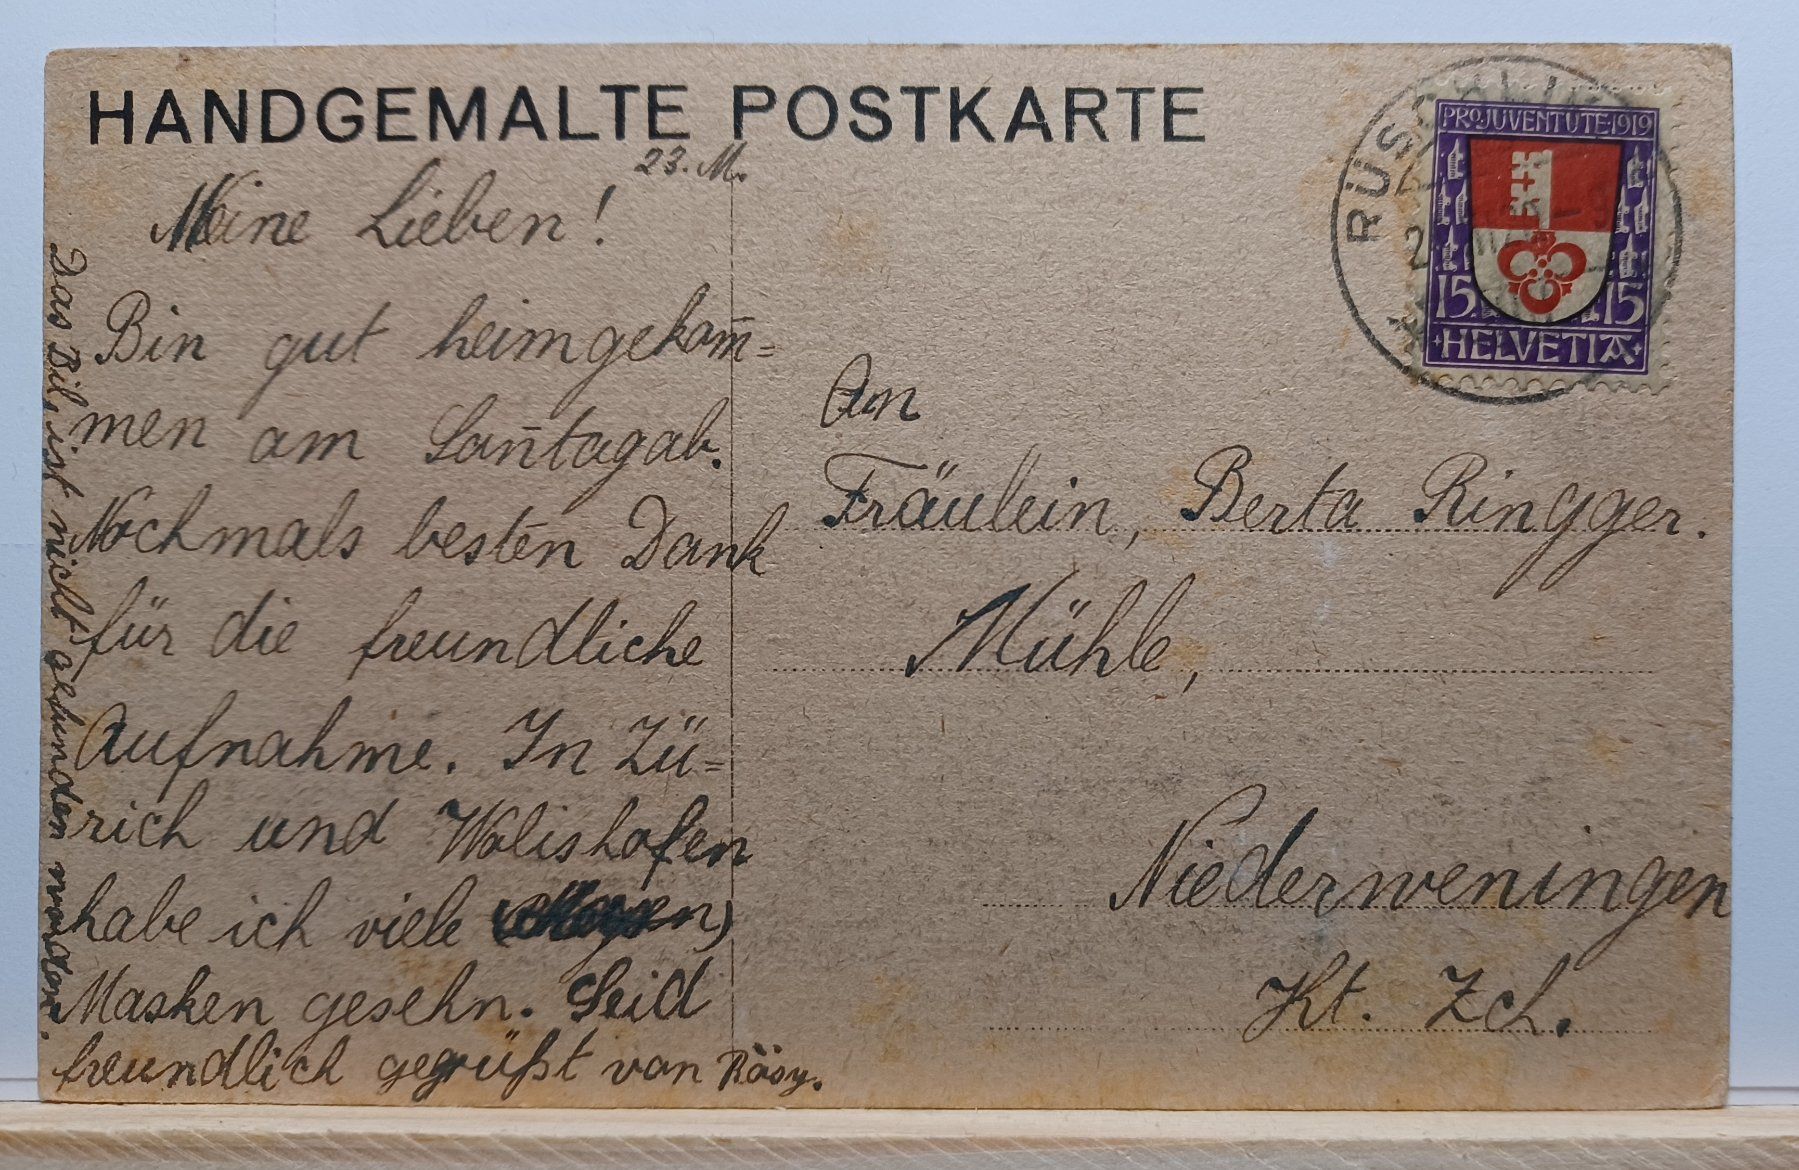 HANDGEMALTE POSTKARTE
23. M.
Meine Lieben!
Bin gut heimgekom̄=
men am Son̄tagab.
Nochmals besten Dank
für die freundliche
Aufnahme. In Zü=
rich und Wolishofen
habe ich viele
Masken gesehn. Seid
freundlich gegrüßt von Rösy.
Das Bild ist nicht gefunden worden.
An
Fräulein, Berta Ringger.
Mühle,
Niederweningen
Kt. Zch.
RÜSCHLIKON
PRO JUVENTUTE 1919
15 15
HELVETIA